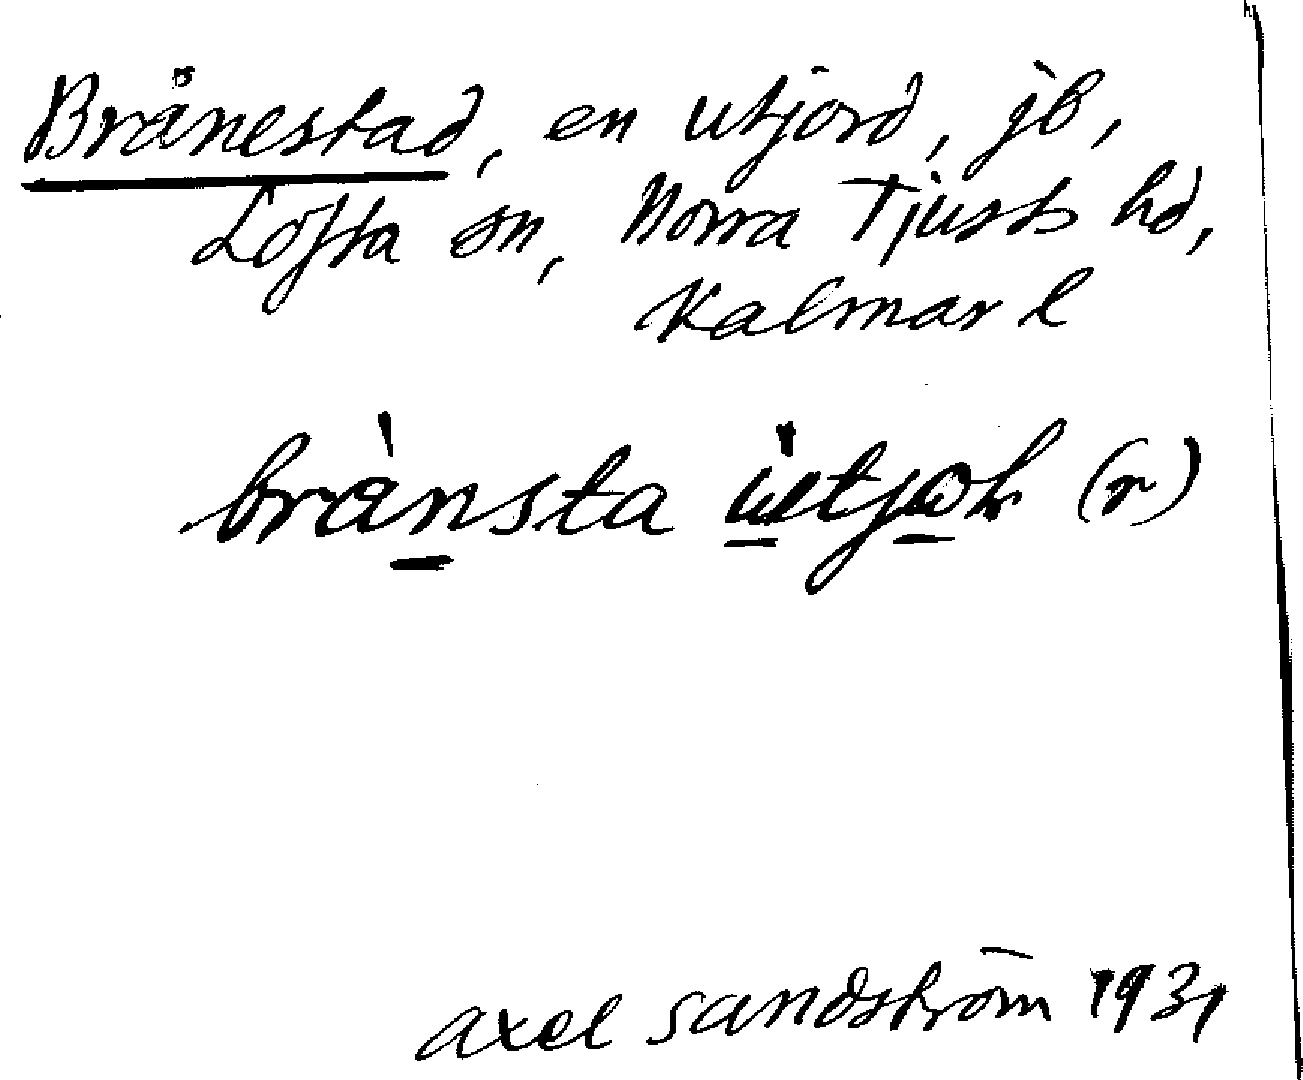 Brånestad, en utjord, jb,
Lofta sn, Norra Tjusts hd,
Kalmar l
brànsta ùtjoh (r)
Axel Sandström 1931